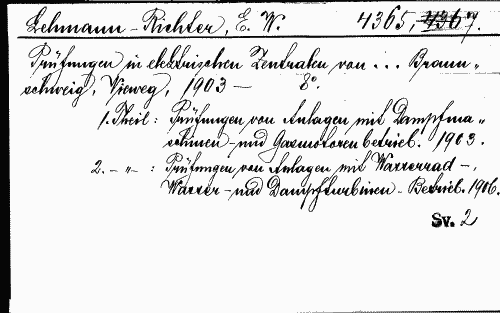 Lehmann-Richter, E. W. 4365, 4367.
Prüfungen in elektrischen Zentralen von ... Braun„
schweig, Vieweg, 1903 — 8°.
1. Theil: Prüfungen von Anlagen mit Dampfma„
schinen- und Gasmotorenbetrieb. 1903.
2. – „ – : Prüfungen von Anlagen mit Wasserrad –,
Wasser- und Dampfturbinen-Betrieb. 1906.
Sv. 2